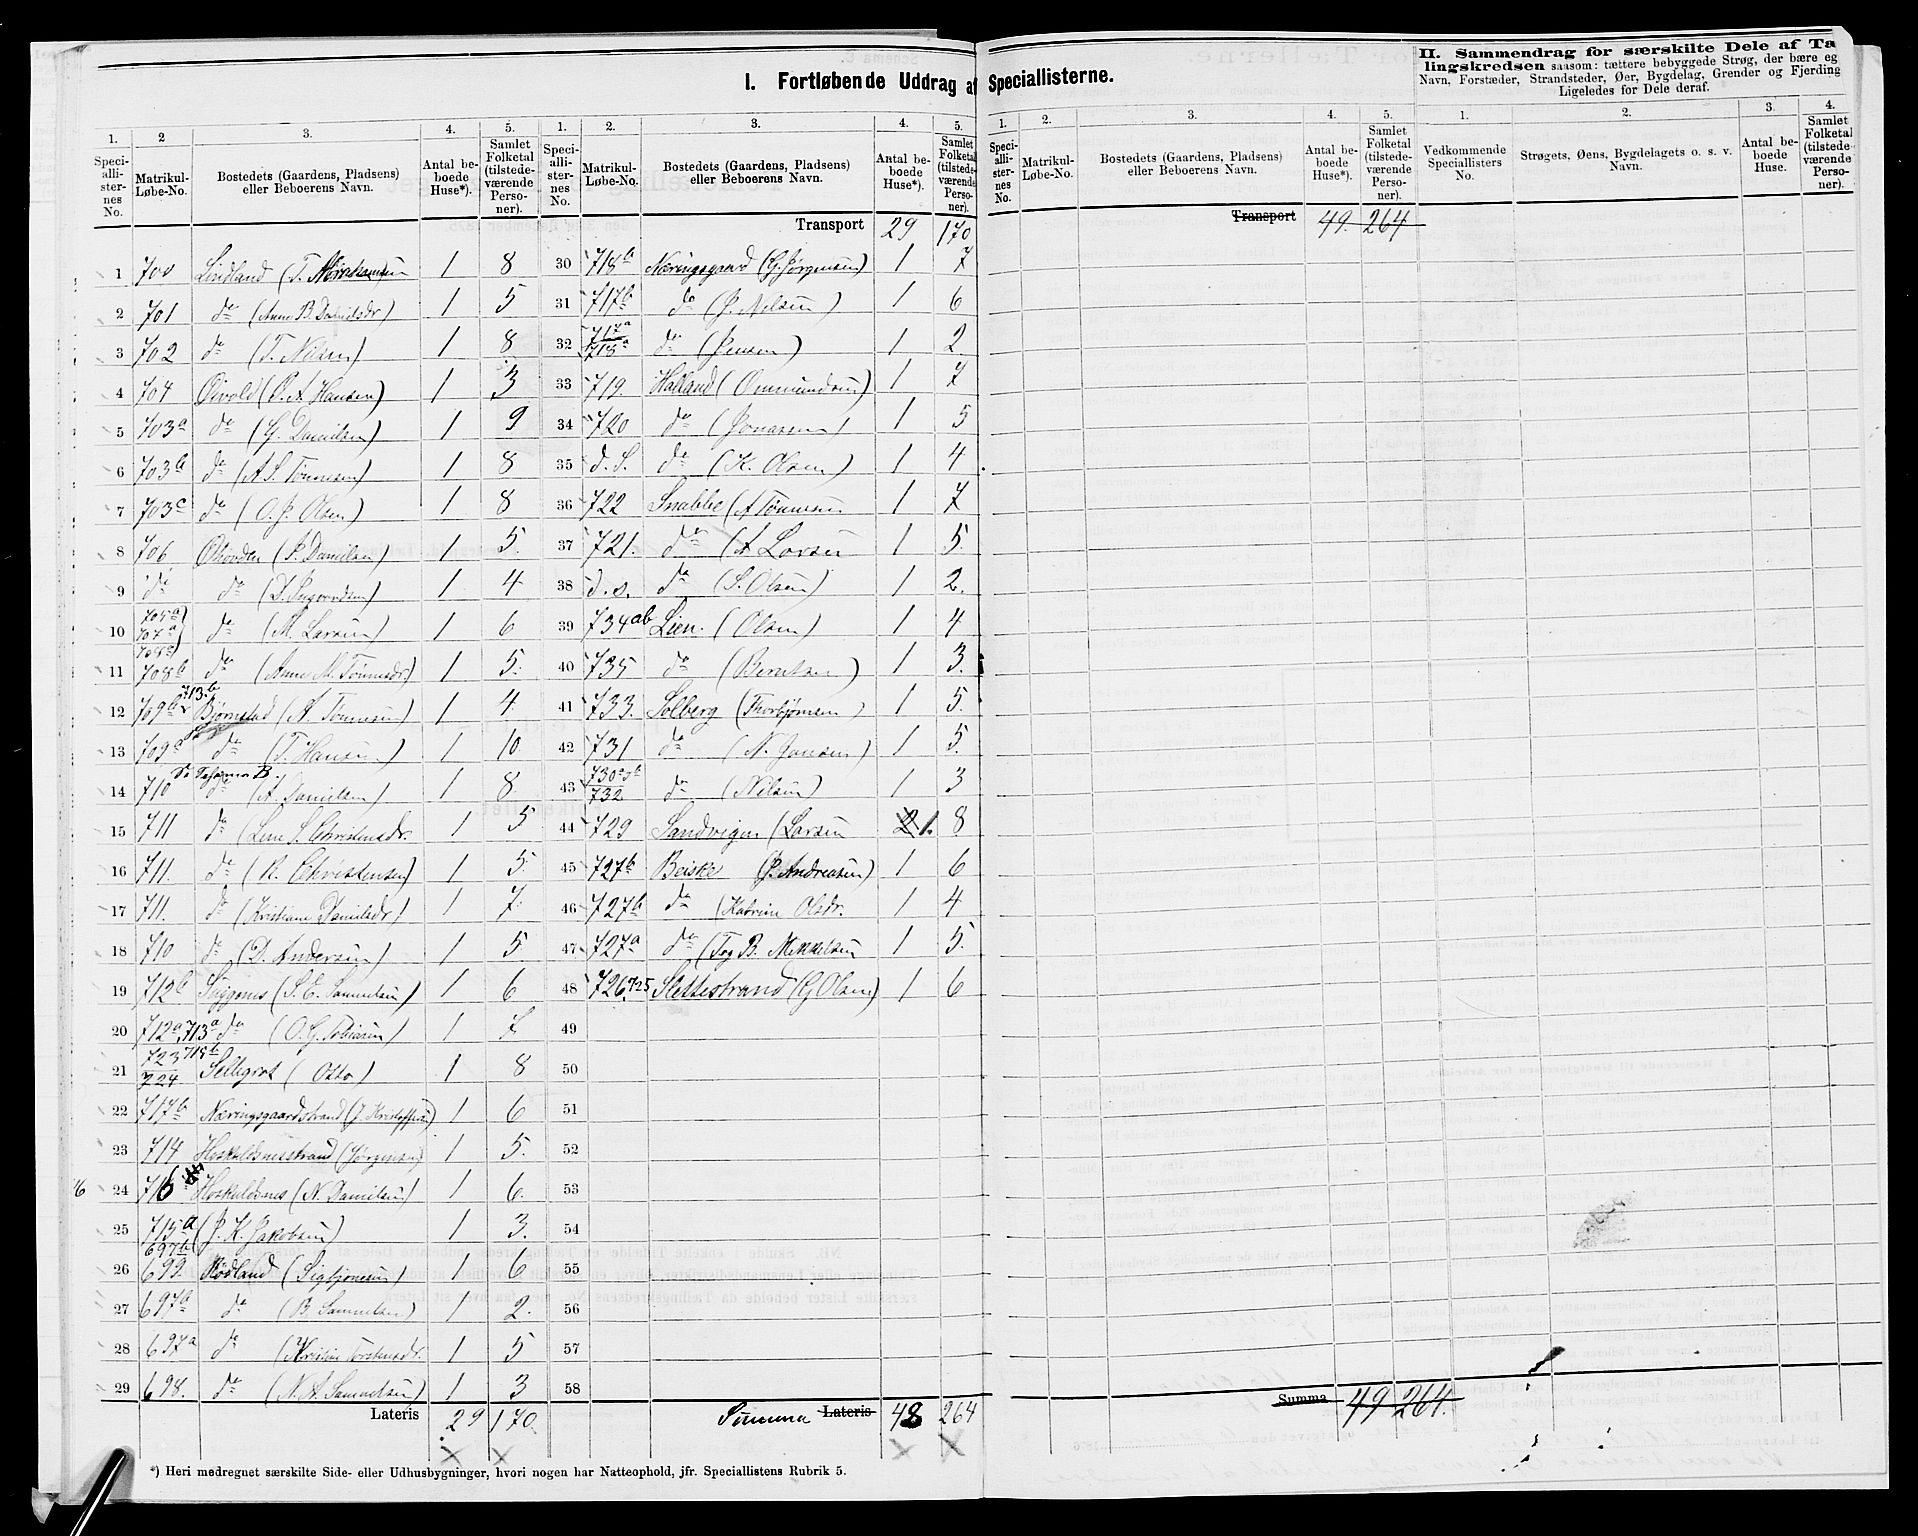 I. Fortløbende Uddrag af Speciallisterne.
II. Sammendrag for særskilte Dele af Ta
lingskredsen saasom: tættere bebyggede Strøg, der bære eg
Navn, Forstæder, Strandsteder, Øer, Bygdelag, Grender og Fjerding
Ligeledes for Dele deraf.
1. 2 3. 4. 5. 1. 2. 3. 4. 5. 1. 2. 3. 4. 5. 1. 2. 3. 4.
Speciallisternes No. Matrikul-Løbe-No. Bostedets (Gaardens, Pladsens) eller Beboerens Navn. Antal beboede Huse*). Samlet Folketal (tilstedeværende Personer).
Speciallisternes No. Matrikul-Løbe-No. Bostedets (Gaardens, Pladsens) eller Beboerens Navn. Antal beboede Huse*). Samlet Folketal (tilstedeværende Personer).
Speciallisternes No. Matrikul-Løbe-No. Bostedets (Gaardens, Pladsens) eller Beboerens Navn. Antal beboede Huse*). Samlet Folketal (tilstedeværende Personer).
Vedkommende Speciallisters No. Strøgets, Øens, Bygdelagets o. s. v. Navn. Antal beboede Huse. Samlet Folketal (tilstedeværende Personer).
Transport 29 170
Transport 49. 264
1 700 Lindland (T. Abrahamsen 1 8
2 701 do (Anne B. Danielsdr) 1 5
3 702 do (T. Nilsen) 1 8
4 704 Øivold (P. A. Hansen) 1 3
5 703a do (G. Danielsen) 1 9
6 703b do (A S. Tønnesen) 1 8
7 703c do (O. J. Olsen) 1 8
8 706 (P. Danielsen) 1 5.
9 do do (D. Sigvardsen) 1 4
10 705a 707a 708a do (M. Larsen) 1 6
11 708b do (Anne M. Tønnesdr.) 1 5.
12 709b 713.b Bjørnstad (A. Tønnesen) 1 4
13 709a do (T. Hansen) 1 10.
14 710 do (A. Danielsen) 1 8.
15 711 do (Lene S. Christensdr. 1 5
16 711. do (R. Christensen) 1 5.
17 711. do (Kristiane Danielsdr) 1 7.
18 710 do (D. Andersen) 1 5.
19 712b (S. E. Samuelsen) 1 6
20 712a, 713a do (O. G. Tobiasen) 1 7
21 723 715b 724 Sellegrot (Otto) 1 8
22 717b Næringsgaardstrand (J. Kristoffersen) 1 6
23 714 Hoskuldsnesstrand (Jørgensen) 1 5.
24 716 Hoskuldsnes (N. Danielsen) 1 6.
25 715a (J. K. Jakobsen) 1 3.
26 697b 699. Rødland (Sigbjønsen) 1 6
27 697b do (B. Samuelsen) 1 2.
28 697a do (Kristine Torstensdr. 1 5
29 698. do (N. A. Samuelsen) 1 3
Lateris 29 170.
30 718a Næringsgaard (G. Jørgensen) 1 7
31 717b do (J. Nelsen) 1 6
32 717a 718a do (Jensen) 1 2.
33 719. Halland (Ommundsen) 1 7
34 720 do (Jonassen) 1 5
35 d. S. do (K. Olsen) 1 4
36 722 Snabbe (A Tønnesen 1 7
37 721. do (A Larsen 1 5.
38 d. s. do (S. Olsen) 1 2.
39 734ab Lien. (Olsen) 1 4
40 735 do (Berntsen) 1 3.
41 733. Solberg (Thorbjørnsen) 1 5.
42 731 do (N. Jonsen) 1 5.
43 730a 732 do (Nilsen) 1 3
44 729 Sandvigen (Larsen 2 1. 8
45 727b Beiske (J. Andreasen) 1 6
46 727b do (Katrine Olsdr. 1 4
47 727a do (Tog B. Mikkelsen 1 5.
48 726. 725 Slettestrand (G Olsen) 1 6
49
50
51
52
53
54
55
56
57
58
Summa Lateris 48 264
Summa 49 264.
*) Heri medregnet særskilte Side- eller Udhusbygninger, hvori nogen har Natteophold, jfr. Speciallistens Rubrik 5.